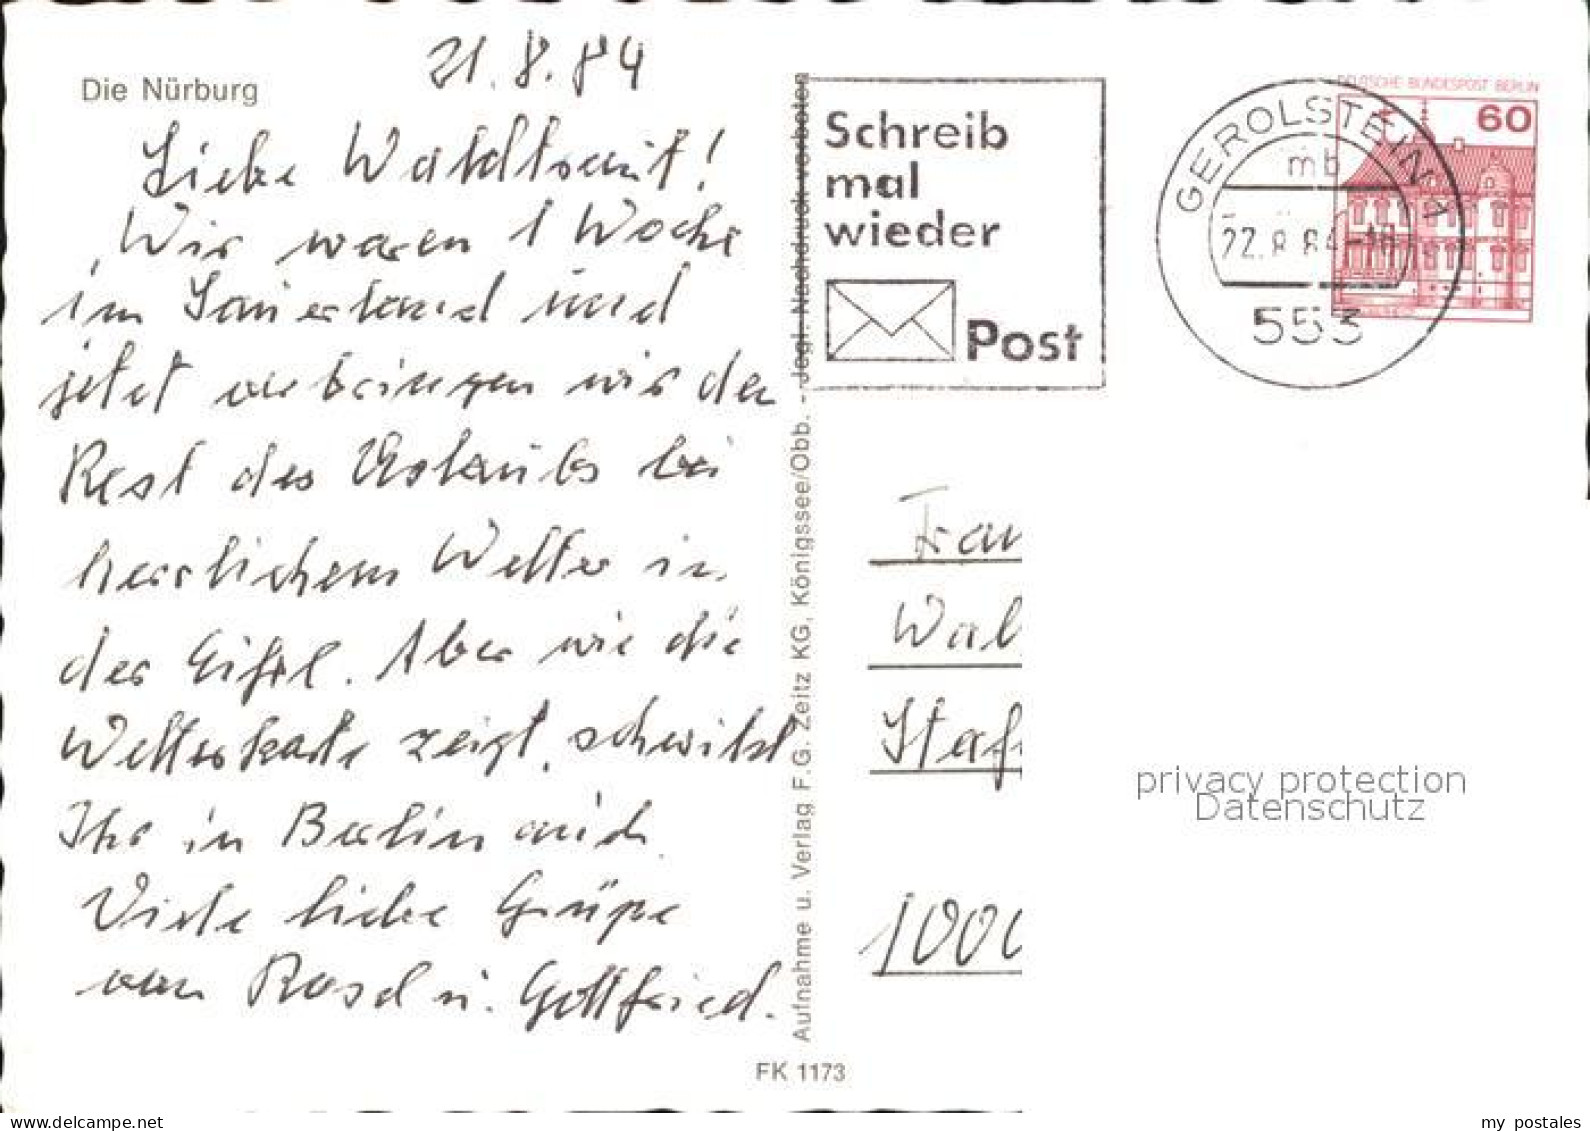 Die Nürburg
21.8.84
Liebe Waldtraut!
Wir waren 1 Woche
im Sauerland und
jetzt verbringen wir den
Rest des Urlaubs bei
herrlichem Wetter in
der Eifel. Aber wie die
Wetterkarte zeigt, schwitzt
Ihr in Berlin auch.
Viele liebe Grüße
von Rosel u. Gottfried.
Aufnahme u. Verlag F.G. Zeitz KG, Königssee/Obb. - Jegl. Nachdruck verboten
FK 1173
Schreib
mal
wieder
Post
GEROLSTEIN 1
mb
22.8.84-18
553
DEUTSCHE BUNDESPOST BERLIN
60
Frau
Wal
Staf
1000
privacy protection
Datenschutz
delcampe.net
my postales